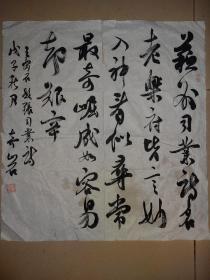 蘇州司業詩名
老樂府皆言妙
入神看似尋常
最奇崛成如容易
却艱辛
王安石題張司業詩
戊子秋月